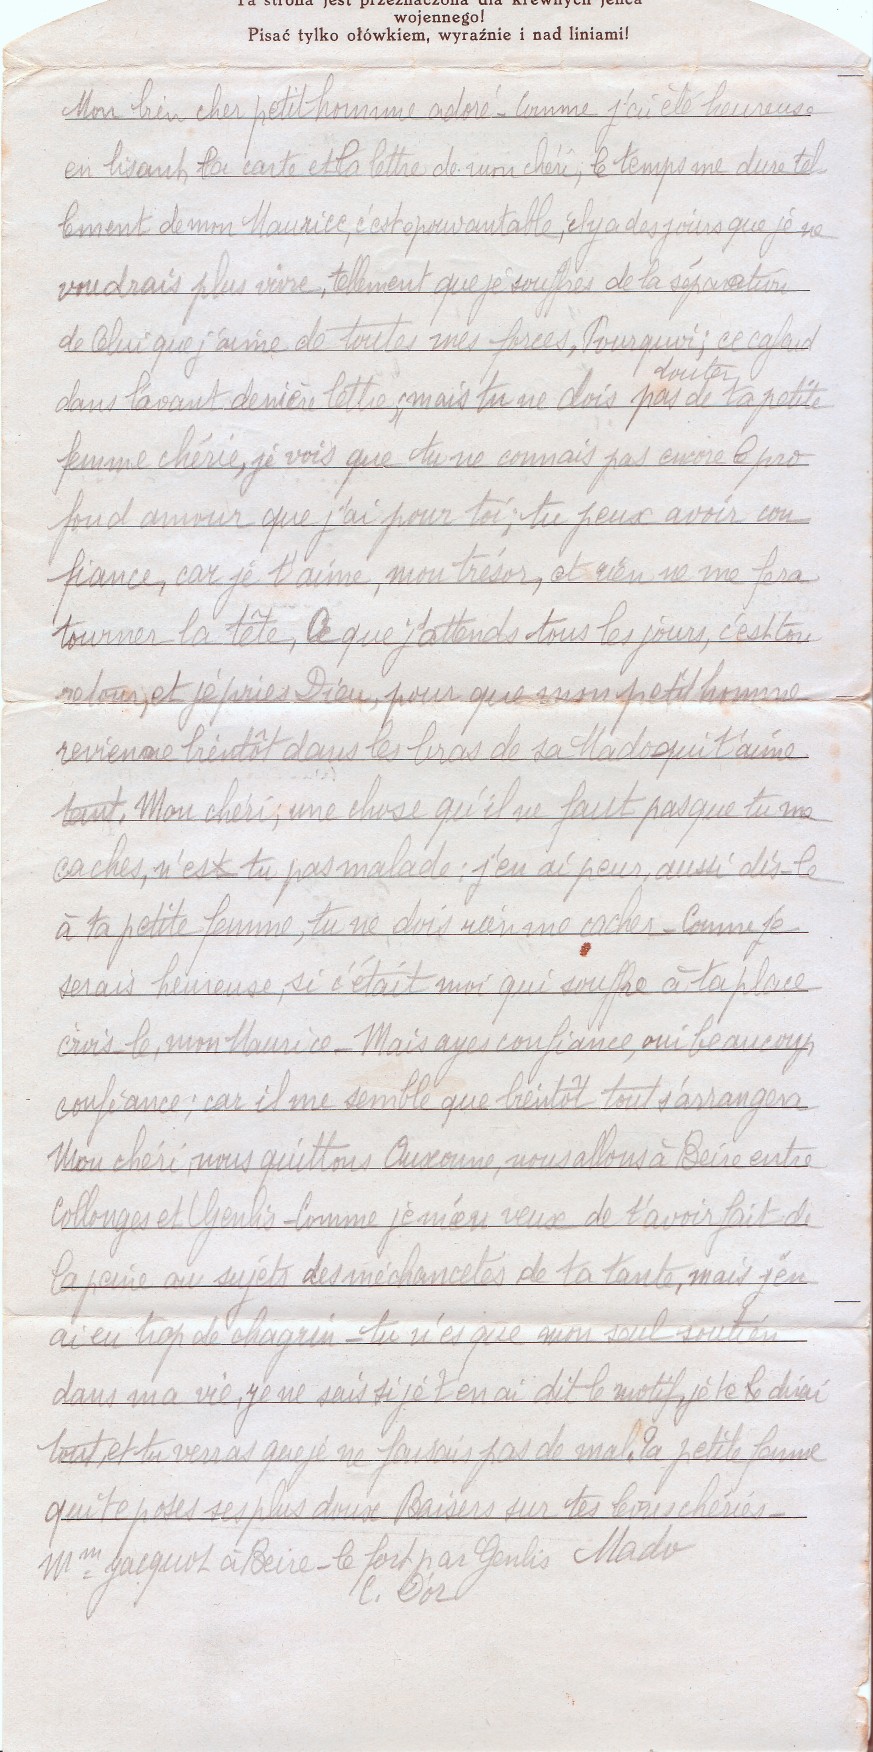 Ta strona jest przeznaczona dla krewnych jeńca
wojennego!
Pisać tylko ołówkiem, wyraźnie i nad liniami!
Mon bien cher petit homme adoré - Comme j'ai été heureuse
en lisant ta carte et la lettre de mon chéri, le temps me dure tel
lement de mon Maurice, c'est epouvantable, il y a des jours que je ne
voudrais plus vivre, tellement que je souffres de la séparation
de Celui que j'aime de toutes mes forces, Pourquoi; ce cafard
dans l'avant dernière lettre, mais tu ne dois pas douter de ta petite
femme chérie, je vois que tu ne connais pas encore le pro
fond amour que j'ai pour toi; tu peux avoir con
fiance, car je t'aime, mon trésor, et rien ne me fera
tourner la tête, Ce que j'attends tous les jours, c'est ton
retour, et je pries Dieu, pour que mon petit homme
revienne bientôt dans les bras de sa Mado qui t'aime
tant. Mon chéri; une chose qu'il ne faut pas que tu me
caches, n'est tu pas malade: j'en ai peur, aussi dis-le
à ta petite femme, tu ne dois rien me cacher - Comme je
serais heureuse, si c'était moi qui souffre à ta place
crois-le, mon Maurice - Mais ayes confiance, oui beaucoup
confiance; car il me semble que bientôt tout s'arrangera
Mon chéri, nous quittons Auxonne, nous allons à Beire entre
Collonges et Genlis - Comme je m'en veux de t'avoir fait de
la peine au sujets des méchancetés de ta tante, mais j'en
ai eu trop de chagrin - tu n'es que mon seul soutien
dans ma vie, je ne sais si je t'en ai dit le motif, je te le dirai
tout, et tu verras que je ne faisais pas de mal. Ta petite femme
qui te poses ses plus doux Baisers sur tes lèvres chéries -
Mme Jacquot à Beire-le fort par Genlis Mado
C. D'or